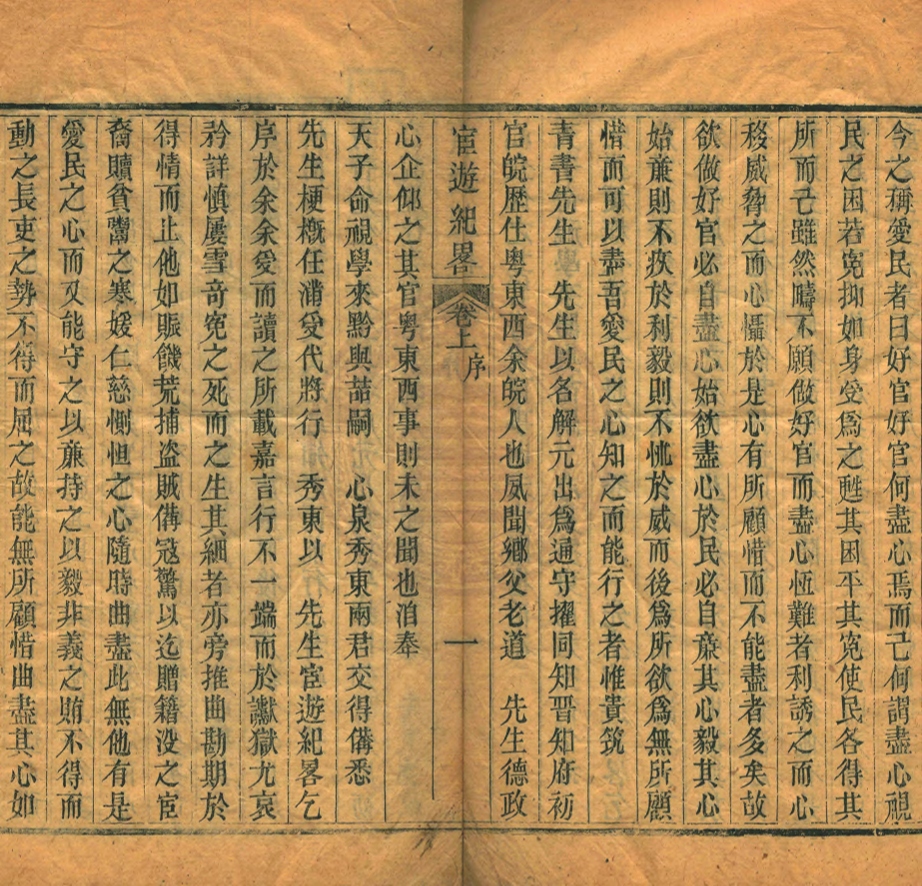 今之稱愛民者曰好官好官何盡心焉而己何謂盡心視
民之困若寃抑如身受爲之甦其困平其寃使民各得其
所而己雖然疇不願做好官而盡心恆難者利誘之而心
移威脅之而心懾於是心有所顧惜而不能盡者多矣故
欲做好官必自盡心始欲盡心於民必自亷其心毅其心
始亷則不疚於利毅則不恌於威而後爲所欲爲無所顧
惜而可以盡吾愛民之心知之而能行之者惟貴筑
青書先生 先生以名解元出爲通守擢同知晋知府初
官皖歷仕粤東西余皖人也夙聞鄉父老道 先生德政
宦遊紀畧 卷上 序 一
心企仰之其官粤東西事則未之聞也洎奉
天子命視學來黔與喆嗣 心泉秀東兩君交得備悉
先生梗槪任滿受代將行 秀東以 先生宦遊紀畧乞
序於余余受而讀之所載嘉言行不一端而於讞獄尤哀
矜詳慎屢雪奇寃之死而之生其細者亦旁推曲勘期於
得情而止他如賑饑荒捕盜賊備冦驚以迄贈籍没之宦
裔贖貧鬻之寒媛仁慈惻怛之心隨時曲盡此無他有是
愛民之心而又能守之以亷持之以毅非義之賄不得而
動之長吏之勢不得而屈之故能無所顧惜曲盡其心如